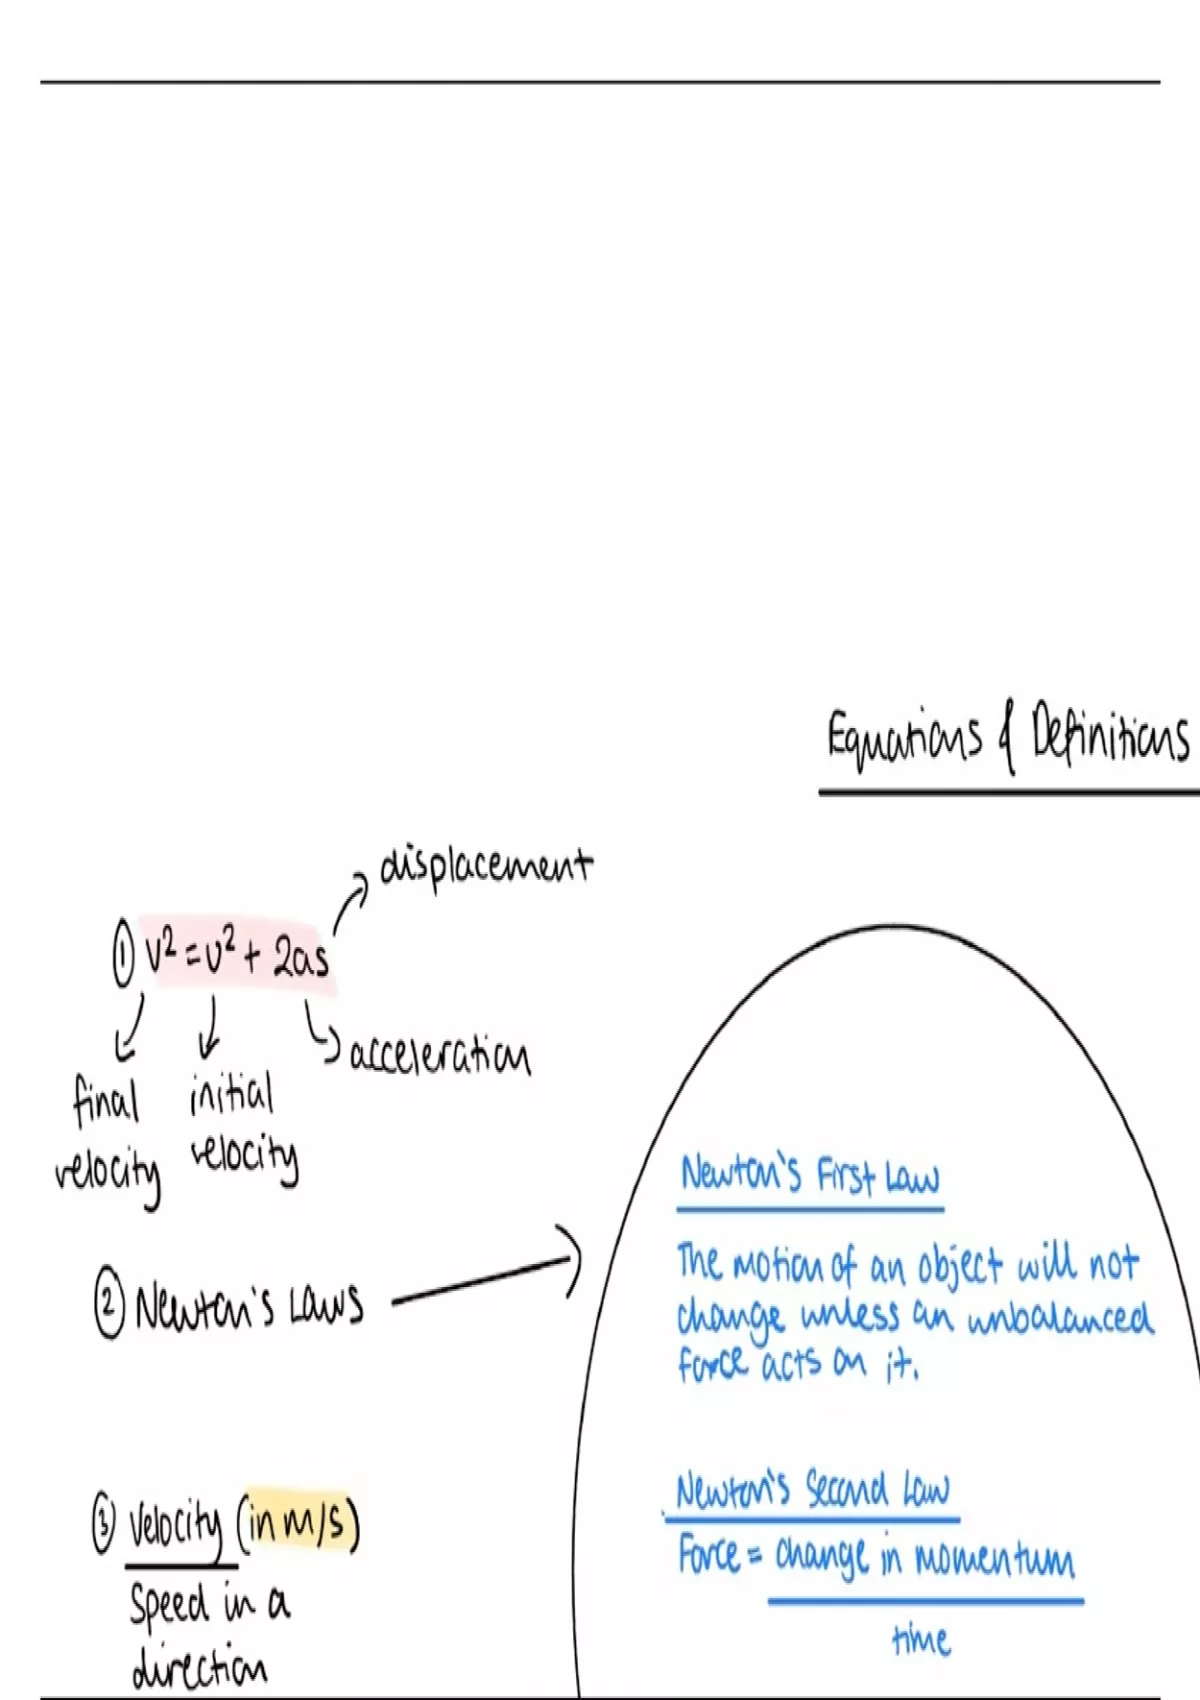 Equations & Definitions
displacement
① v² = u² + 2as
acceleration
final
velocity
initial
velocity
② Newton's Laws
③ Velocity (in m/s)
Speed in a
direction
Newton's First Law
The motion of an object will not
change unless an unbalanced
force acts on it.
Newton's Second Law
Force = change in momentum
time